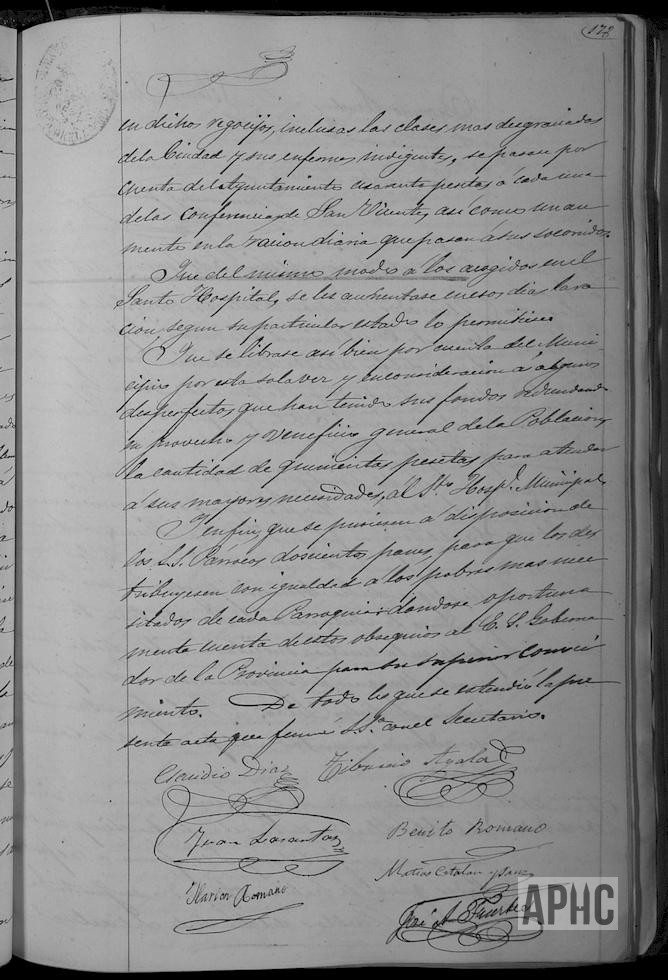 178
en dichos regocijos, inclusas las clases mas desgraciadas
de la Ciudad y sus enfermos indigentes, se pasase por
cuenta del Ayuntamiento cuarenta pesetas á cada una
de las conferencias de San Vicente, así como un au
mento en la racion diaria que pasan á sus socorridos.
Que del mismo modo a los acogidos en el
Santo Hospital, se les aumentase en esos dias la ra
cion segun su particular estado lo permitiese
Que se librase así bien por cuenta del Muni
cipio por esta sola vez y en consideracion á algunos
desperfectos que han tenido sus fondos redundando
en provecho y veneficio general de la Poblacion,
la cantidad de quinientas pesetas para atender
á sus mayores necesidades, al Sto. Hospl. Municipal,
Y en fin, que se pusieren a disposicion de
los S.S. Párrocos doscientos panes, para que los dis
tribuyesen con igualdad a los pobres mas nece
sitados de cada Parroquia: dandose oportuna
mente cuenta de estos obsequios al E. S. Goberna
dor de la Provincia para su superior conoci
miento. De todo lo que se estendió la pre
sente acta que firma S.Sª con el Secretario.
Claudio Diaz Tiburcio Ayala
Juan Lasanta
Benito Romano
Matias Catalan y Sanz
Ylarion Romano
José A. Fuertes
APHC